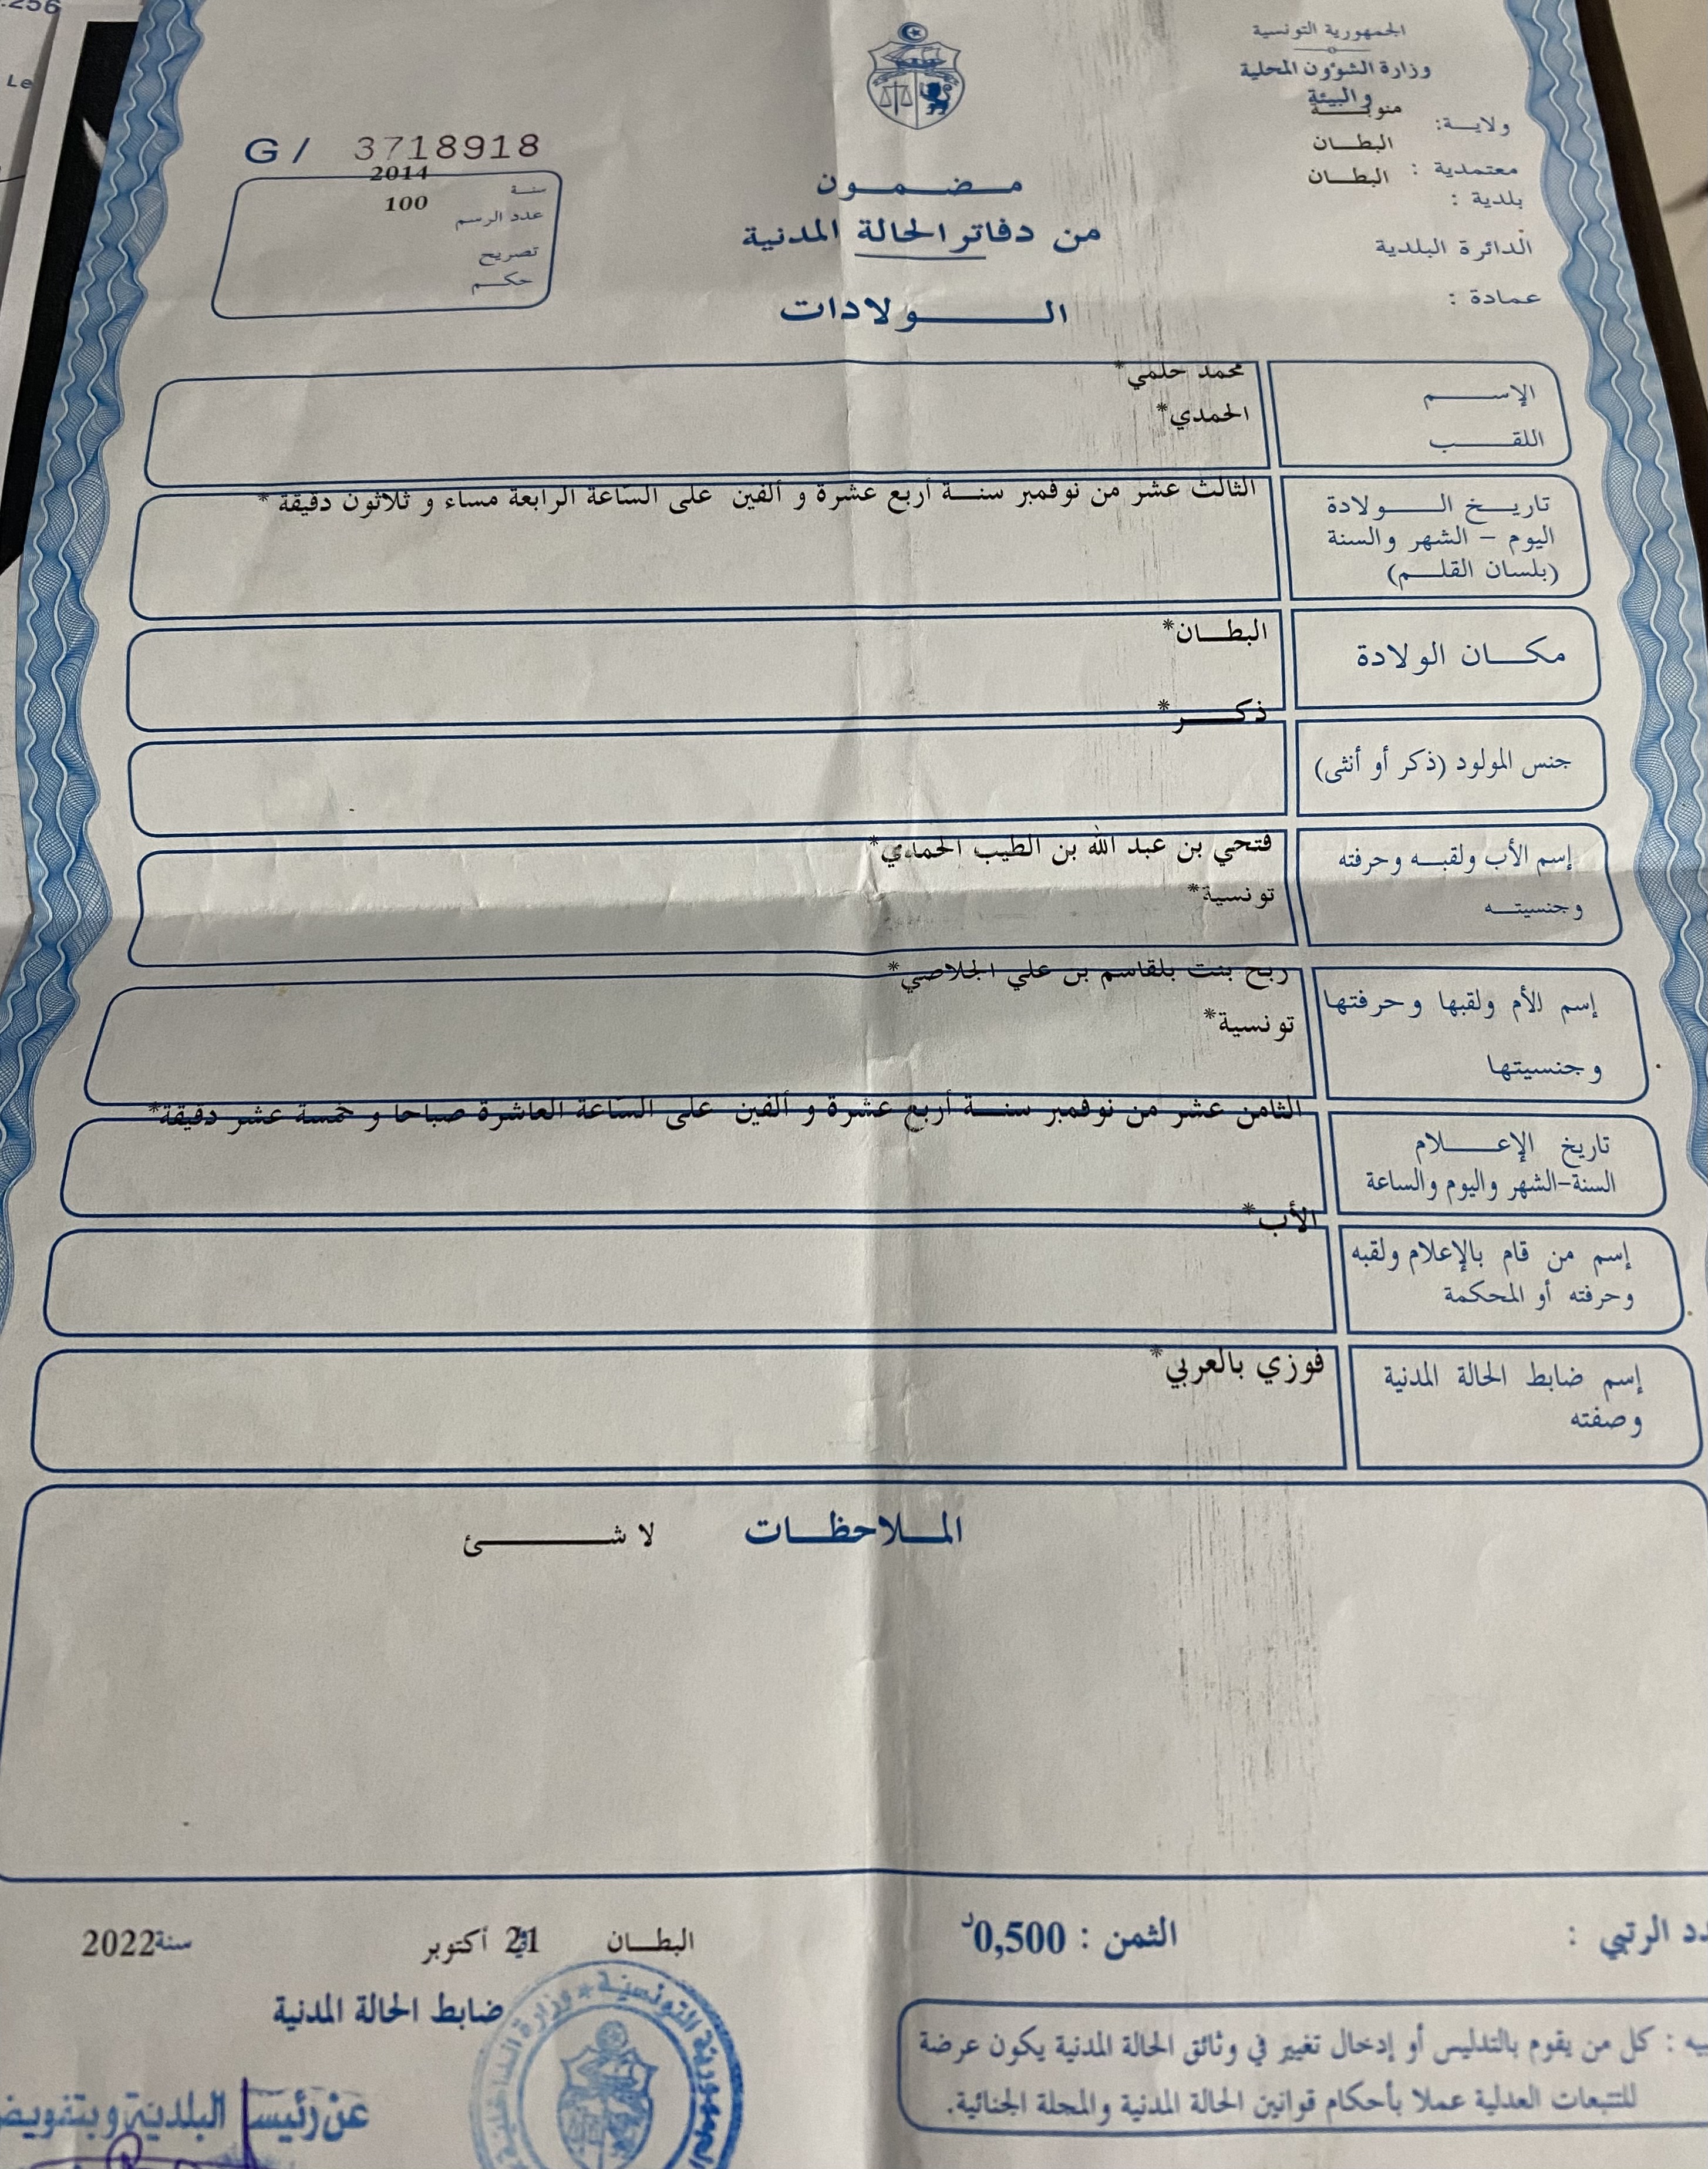 .256
Le
الجمهورية التونسية
وزارة الشؤون المحلية
والبيئة
ولاية: منوبة
معتمدية : البطان
بلدية : البطان
الدائرة البلدية
عمادة :
G / 3718918
سنة 2014
عدد الرسم 100
تصريح
حكم
مضمون
من دفاتر الحالة المدنية
الولادات
الإسم محمد حلمي*
اللقب الحمدي*
تاريخ الولادة الثالث عشر من نوفمبر سنة أربع عشرة و ألفين على الساعة الرابعة مساء و ثلاثون دقيقة *
اليوم - الشهر والسنة
(بلسان القلم)
مكان الولادة البطان*
جنس المولود (ذكر أو أنثى) ذكر*
إسم الأب ولقبه وحرفته فتحي بن عبد الله بن الطيب الحمدي*
وجنسيته تونسية*
إسم الأم ولقبها وحرفتها ربح بنت بلقاسم بن علي الجلاصي*
وجنسيتها تونسية*
تاريخ الإعلام الثامن عشر من نوفمبر سنة أربع عشرة و ألفين على الساعة العاشرة صباحا و خمسة عشر دقيقة*
السنة-الشهر واليوم والساعة
إسم من قام بالإعلام ولقبه الأب*
وحرفته أو المحكمة
إسم ضابط الحالة المدنية فوزي بالعربي*
وصفته
الملاحظات لا شئ
دد الرتبي :
الثمن : 0,500د
البطان في 21 أكتوبر سنة 2022
ضابط الحالة المدنية
يه : كل من يقوم بالتدليس أو إدخال تغيير في وثائق الحالة المدنية يكون عرضة
للتتبعات العدلية عملا بأحكام قوانين الحالة المدنية والمجلة الجنائية.
الجمهورية التونسية * وزارة الداخلية
عن رئيس البلدية وبتفويض